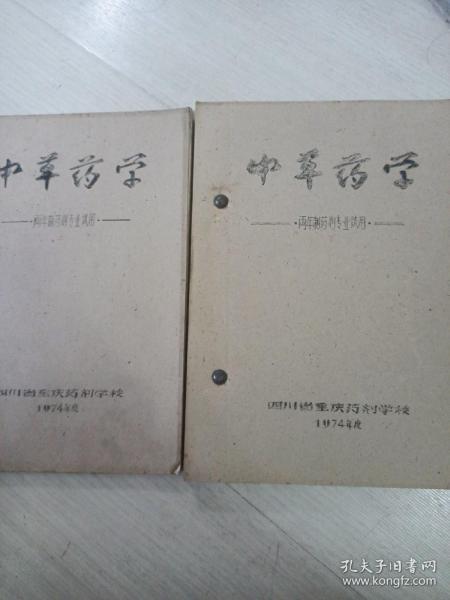 中草药学
·两年制药剂专业试用·
四川省重庆药剂学校
1974年度
中草药学
·两年制药剂专业试用·
四川省重庆药剂学校
1974年度
孔夫子旧书网
www.kongfz.com